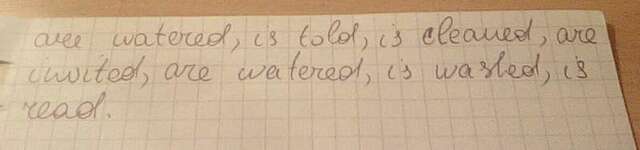 are watered, is told, is cleaned, are
invited, are watered, is washed, is
read.